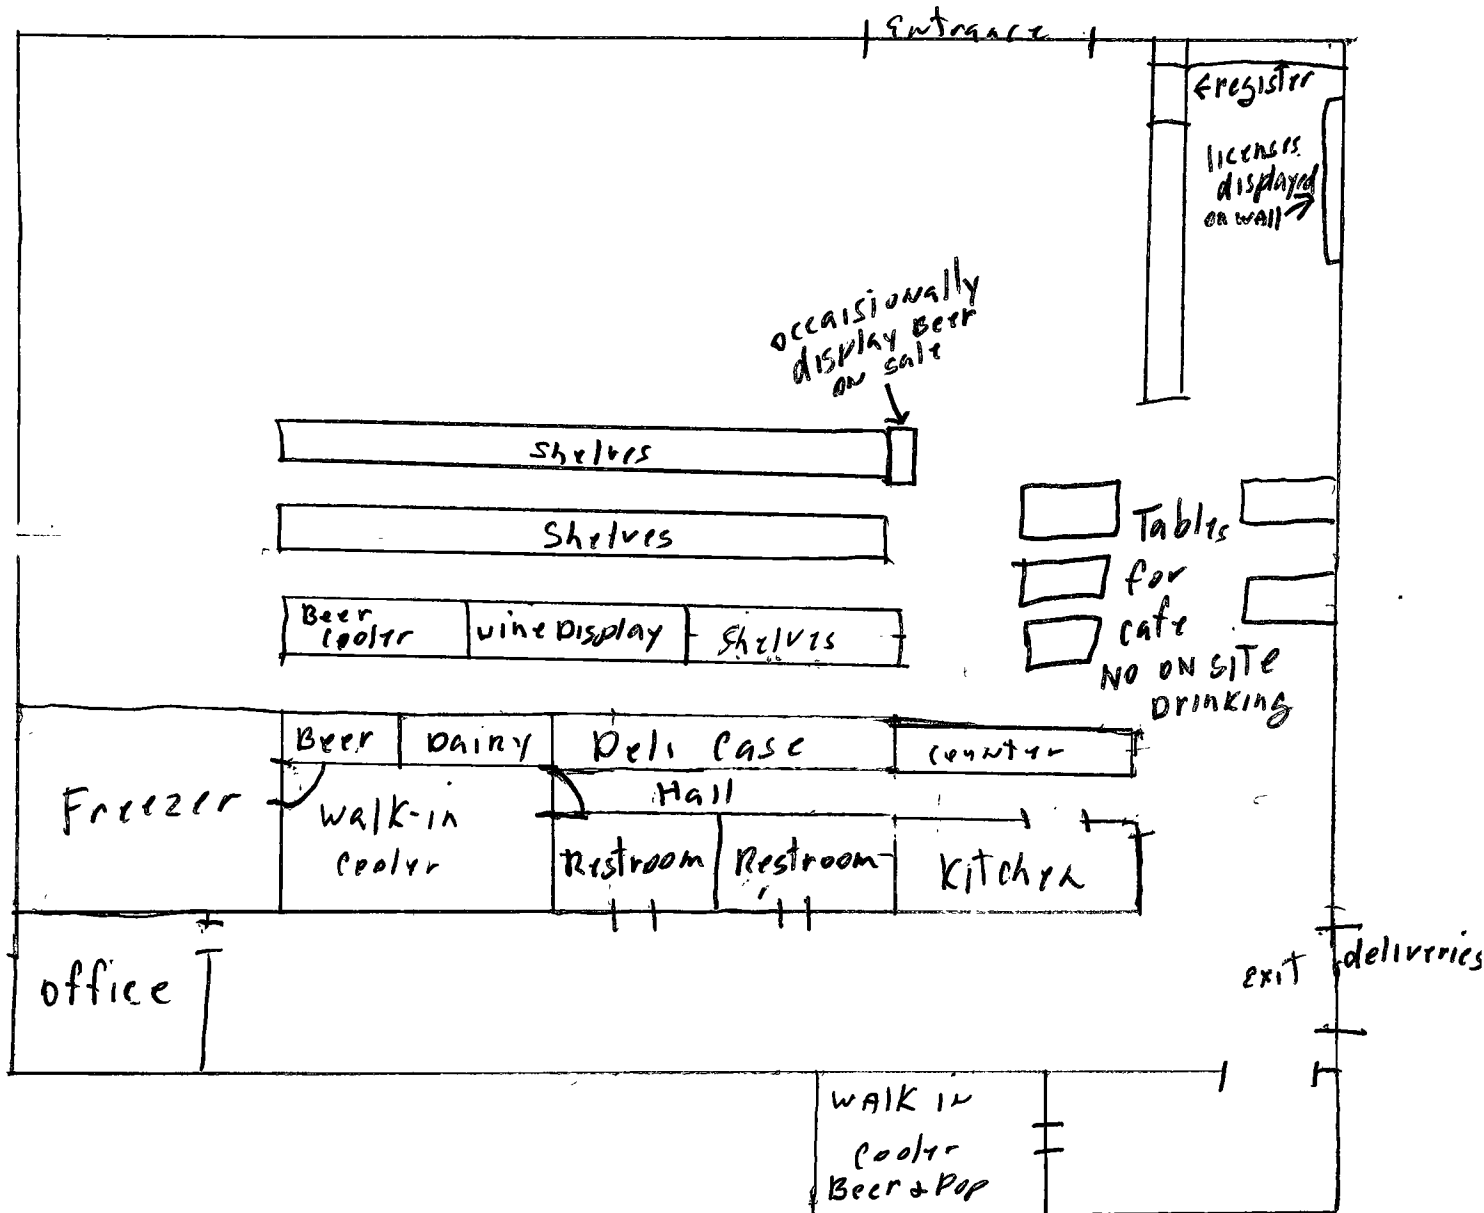 Entrance
←register
licenses
displayed
on wall
occaisionally
display Beer
on sale
Shelves
Shelves
Beer
cooler
wine Display
Shelves
Tables
for
cafe
NO ON SITE
DRINKING
Beer
Dairy
Deli Case
counter
Hall
Freezer
Walk-in
cooler
Restroom
Restroom
Kitchen
office
exit
deliveries
WALK IN
cooler
Beer & Pop